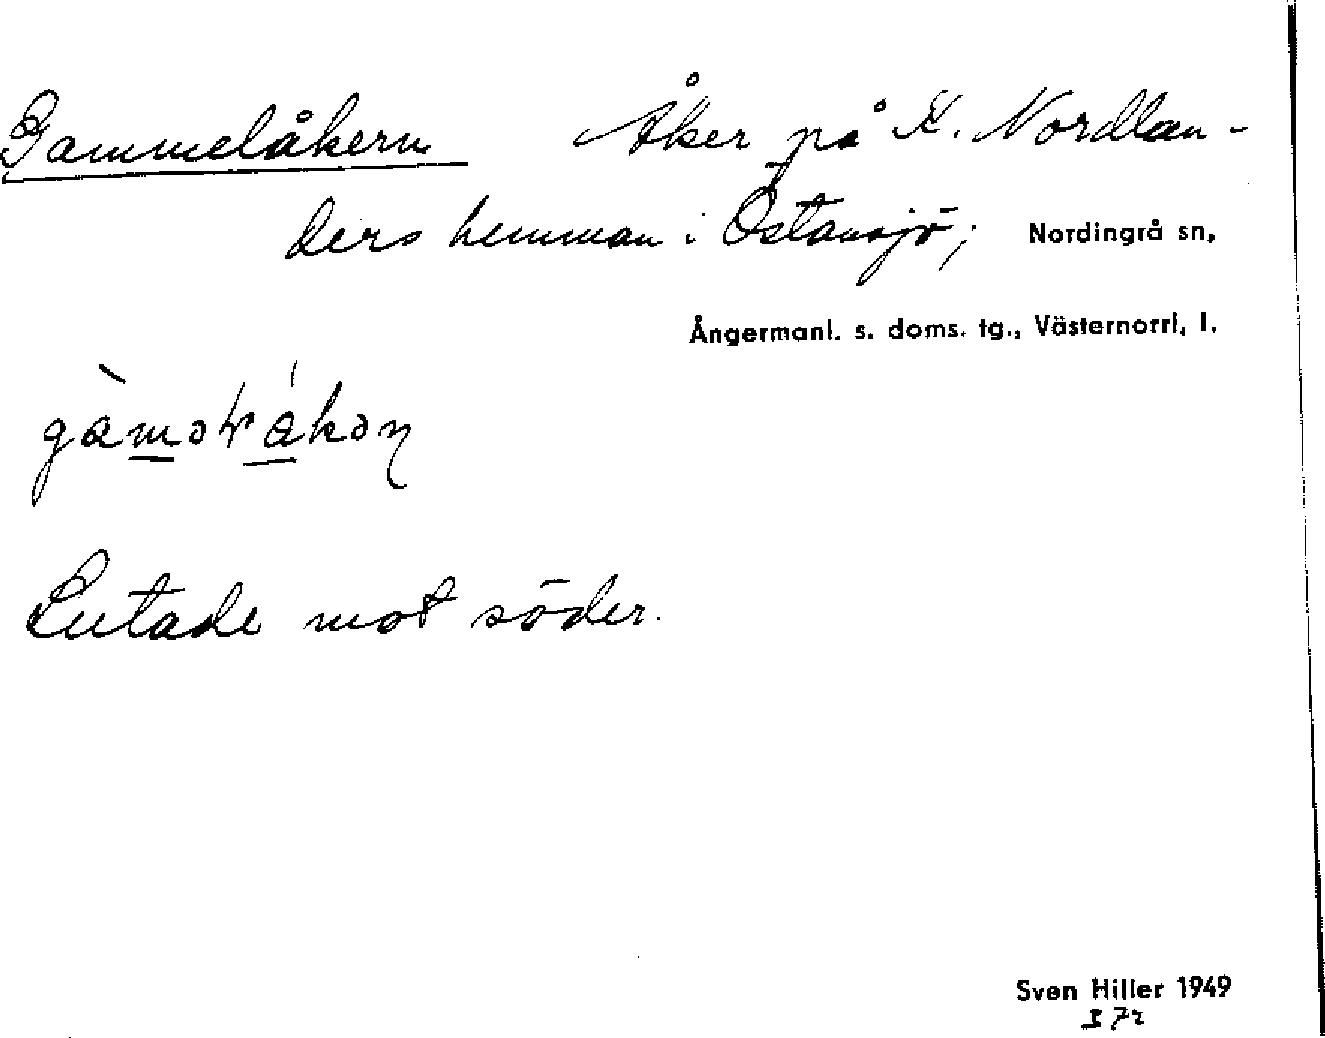 Gammelåkern Åker på K. Nordlan-
ders hemman i Östansjö; Nordingrå sn,
Ångermanl. s. doms. tg., Västernorrl. l.
Lutade mot söder.
Sven Hiller 1949